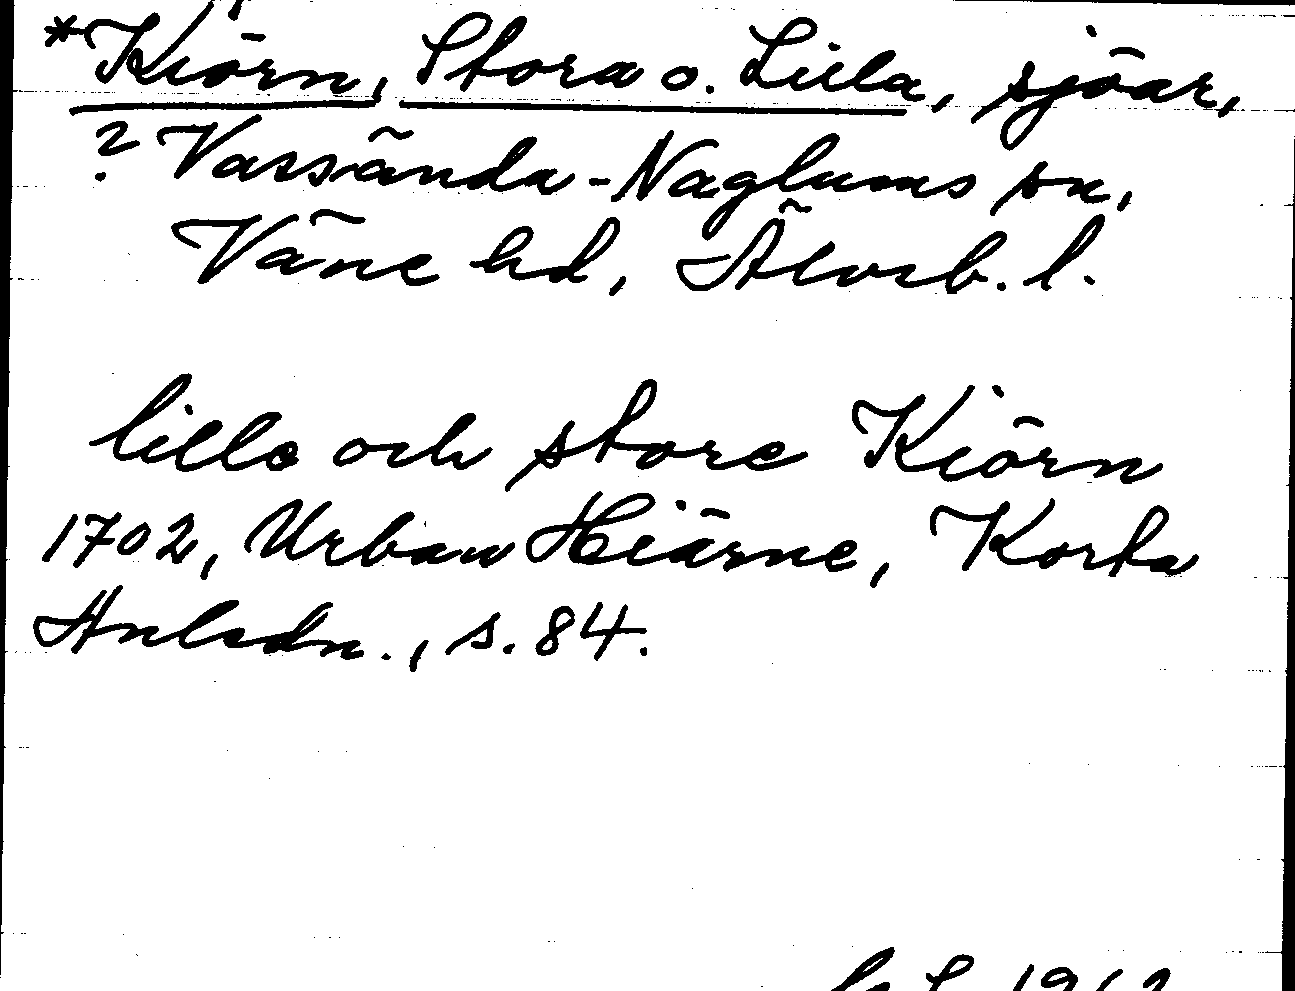 *Kiörn, Stora o. Lilla, sjöar,
? Vassända-Naglums sn,
Väne hd, Älvsb. l.
lille och store Kiörn
1702, Urban Hiärne, Korta
Anledn., s. 84.